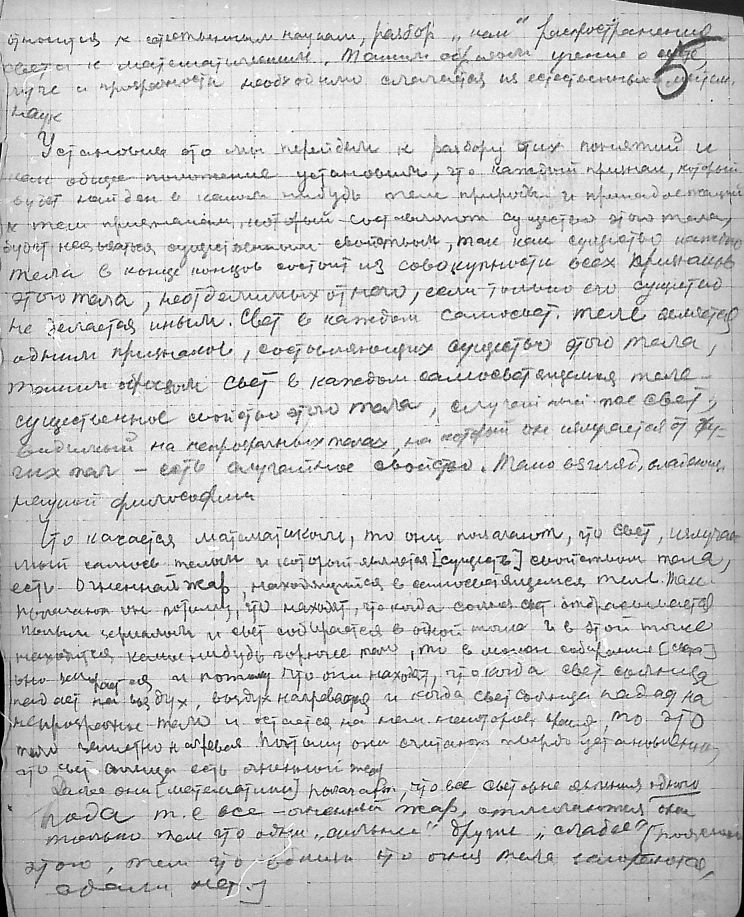 относится к естественным наукам, разбор „как" распространения
света к математическим. Таким образом учение о
луче и прозрачности необходимо слагается из естественных и матем.
наук
Установив это мы перейдем к разбору этих понятий и
как общее положение установим, что каждый признак, который
будет найден в каком нибудь теле природы и принадлежащий
к тем признакам, который составляют существо этого тела,
будет называться существенным свойством, так как существо каждого
тела в конце концов состоит из совокупности всех признаков
этого тела, неотделимых от него, если только его существо
не делается иным. Свет в каждом самосвет. теле является
одним признаков, составляющих существо этого тела,
таким образом свет в каждом самосветящемся теле –
существенное свойство этого тела, случайный же свет,
видимый на непрозрачных телах, на который он излучается от дру-
гих тел – есть случайное свойство. Таков взгляд, владеющих
наукой философии
Что касается математиков, то они полагают, что свет, излучае-
мый самосв. телом и который является [существ] свойством тела,
есть огненный жар, находящийся в самосветящемся теле. Так
полагают они потому, что находят, что когда солн. свет отбрасывается
полым зеркалом и свет собирается в одной точке и в этой точке
находится какое нибудь горючее тело, то в таком собирании [света]
оно загорается и потому что они находят, что когда свет солнца
падает на воздух, воздух нагревается и когда свет солнца падает на
непрозрачное тело и остается на нем некоторое время, то это
тело заметно нагревая. Потому они считают твердо установленным,
что свет солнца есть огненный жар
Далее они [математики] полагают, что все световые явления одного
рода т. е все – огненный жар, отличаются они
только тем что одни „сильнее" другие „слабее" [поясняют
этого, тем что одни
одали нет.]